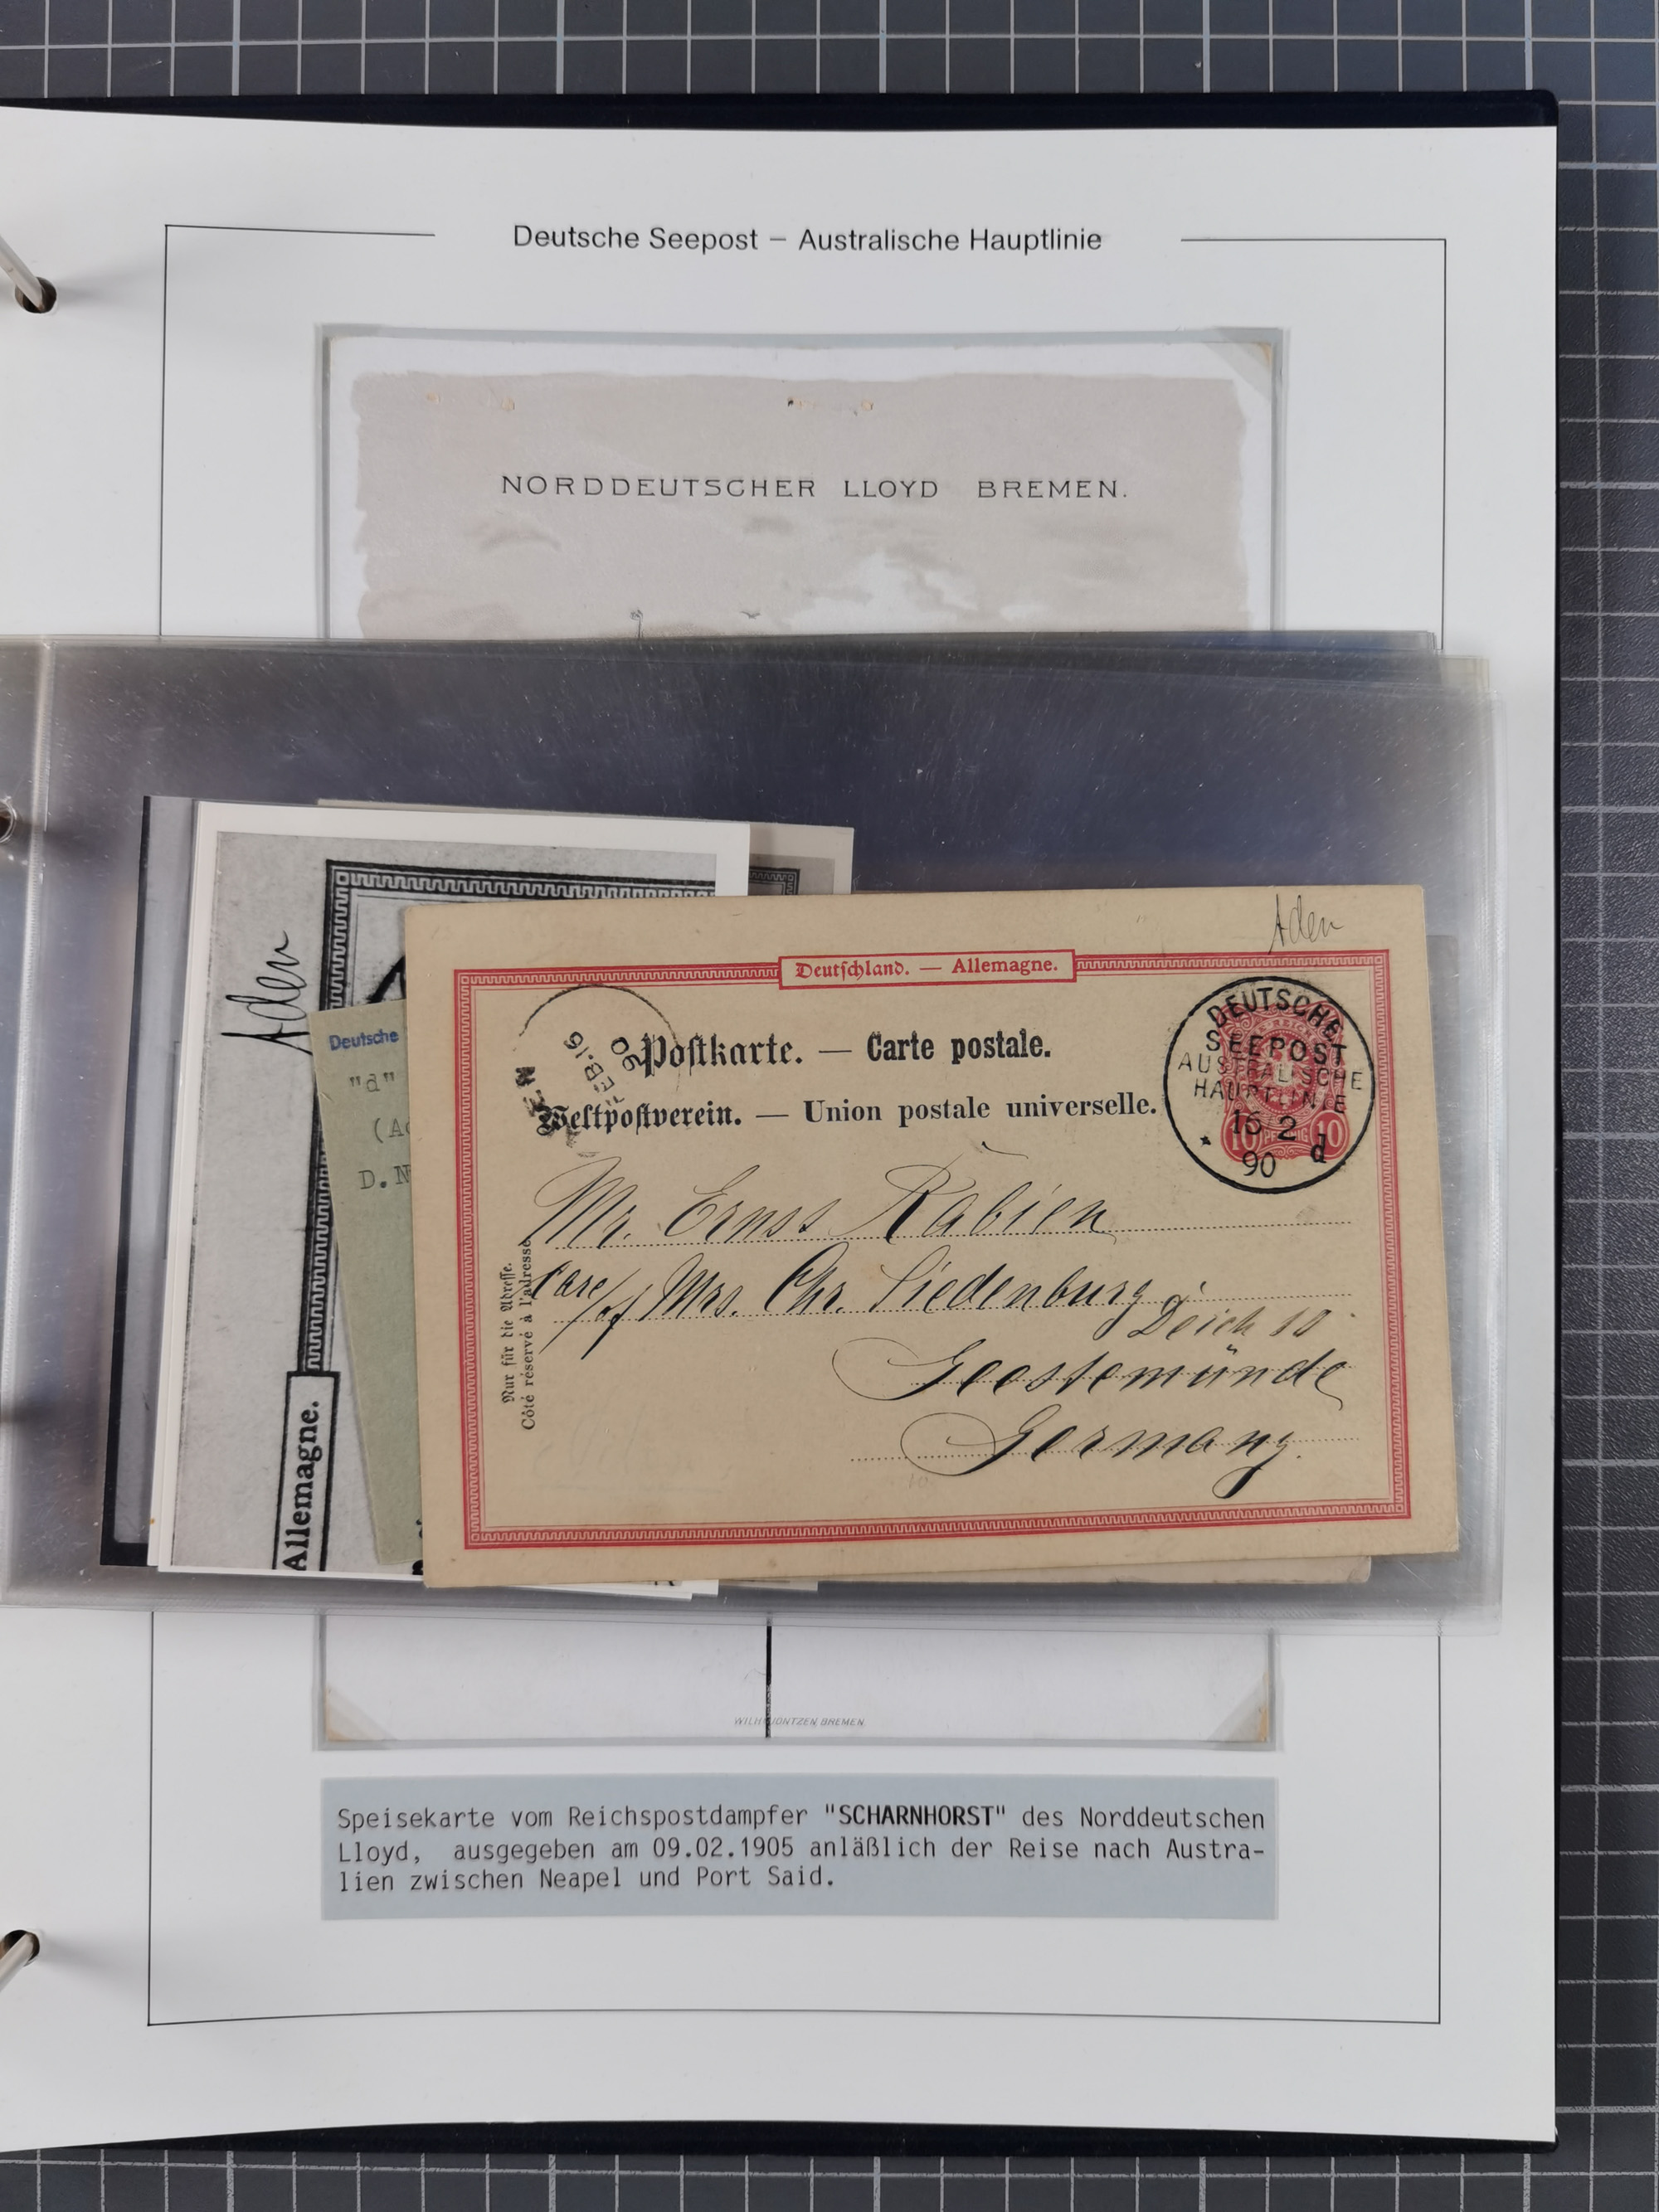 Deutsche Seepost – Australische Hauptlinie
NORDDEUTSCHER LLOYD BREMEN.
Aden
Allemagne.
Deutsche
"d"
D.N
Aden
Deutschland. — Allemagne.
Postkarte. — Carte postale.
Weltpostverein. — Union postale universelle.
EB.16
90
DEUTSCHE
SEEPOST
AUSTRALISCHE
HAUPTLINIE
15 2
90 d
10 PFENNIG 10
Mr. Ernss Rabien
Care/of Mrs. Chr. Siedenburg
Deich 10
Geestemünde
Germany.
Nur für die Adresse.
Côté réservé à l'adresse
BREMEN.
Speisekarte vom Reichspostdampfer "SCHARNHORST" des Norddeutschen
Lloyd, ausgegeben am 09.02.1905 anläßlich der Reise nach Austra-
lien zwischen Neapel und Port Said.